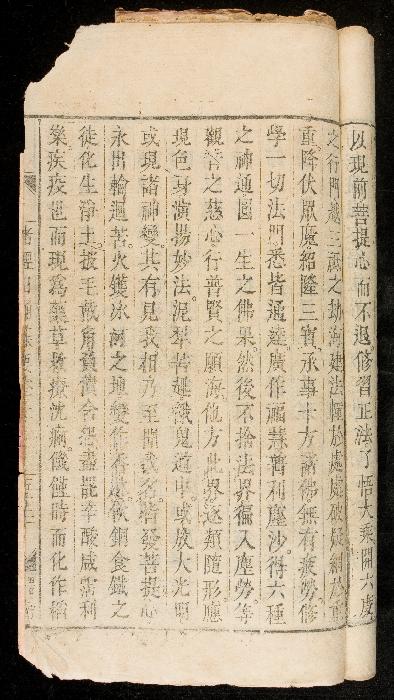 以現前菩提心而不退修習正法了悟大乘開六度
之行門越三祇之劫海建法幢於處處破疑網於重
重降伏眾魔紹隆三寶承事十方諸佛無有疲勞修
學一切法門悉皆通達廣作福慧普利塵沙得六種
之神通圓一生之佛果然後不捨法界徧入塵勞等
觀音之慈心行普賢之願海他方此界逐類隨形應
現色身演揚妙法泥犂苦趣餓鬼道中或放大光明
或現諸神變其有見我相乃至聞我名皆發菩提心
永出輪迴苦火鑊冰河之地變作香林飲銅食鐵之
徒化生淨土披毛戴角負債含怨盡罷辛酸咸霑利
樂疾疫世而現為藥草救療沈痾饑饉時而化作稻